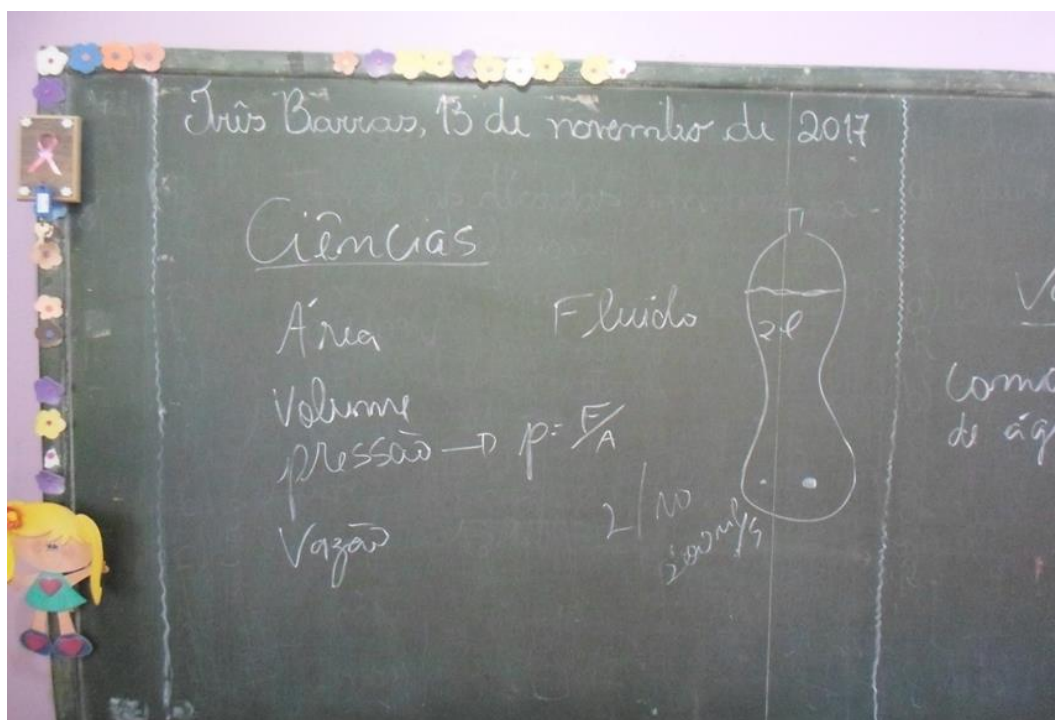 Três Barras, 13 de novembro de 2017
Ciências
Área
Fluido
2l
Volume
pressão → p = F/A
Vazão
2/10
200 ml/s
V
de ág